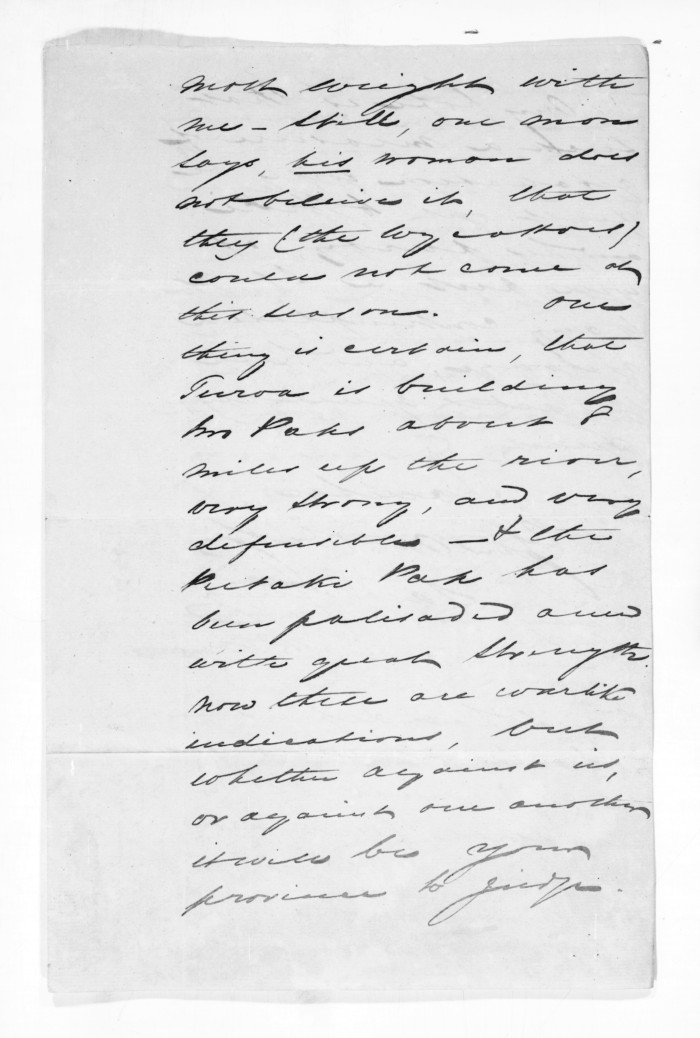 most weight with
me – Still, one man
says, his woman does
not believe it, that
they (the Wycattoes)
could not come at
this season. One
thing is certain, that
Turoa is building
two Pahs about 8
miles up the river,
very strong, and very
defensible – & the
Putaki Pah has
been palisaded anew
with great strength.
now these are warlike
indications, but
whether against us,
or against one another
it will be your
province to judge.